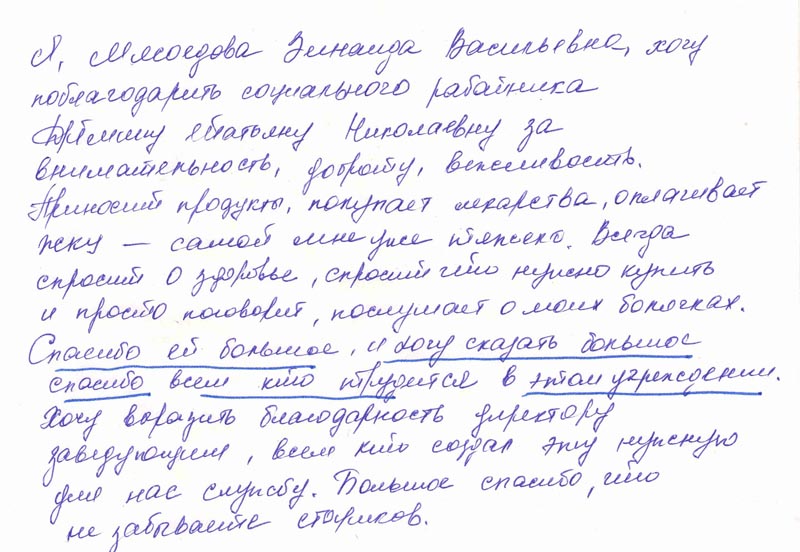 Я, Мясоедова Зинаида Васильевна, хочу
поблагодарить социального работника
Татьяну Николаевну за
внимательность, доброту, вежливость.
Приносит продукты, покупает лекарства, оплачивает
жску — самой мне уже тяжело. Всегда
спросит о здоровье, спросит что нужно купить
и просто поговорит, послушает о моих болячках.
Спасибо ей большое, и хочу сказать большое
спасибо всем кто трудится в этом учреждении.
Хочу выразить благодарность директору
заведующим, всем кто создал эту нужную
для нас службу. Большое спасибо, что
не забываете стариков.